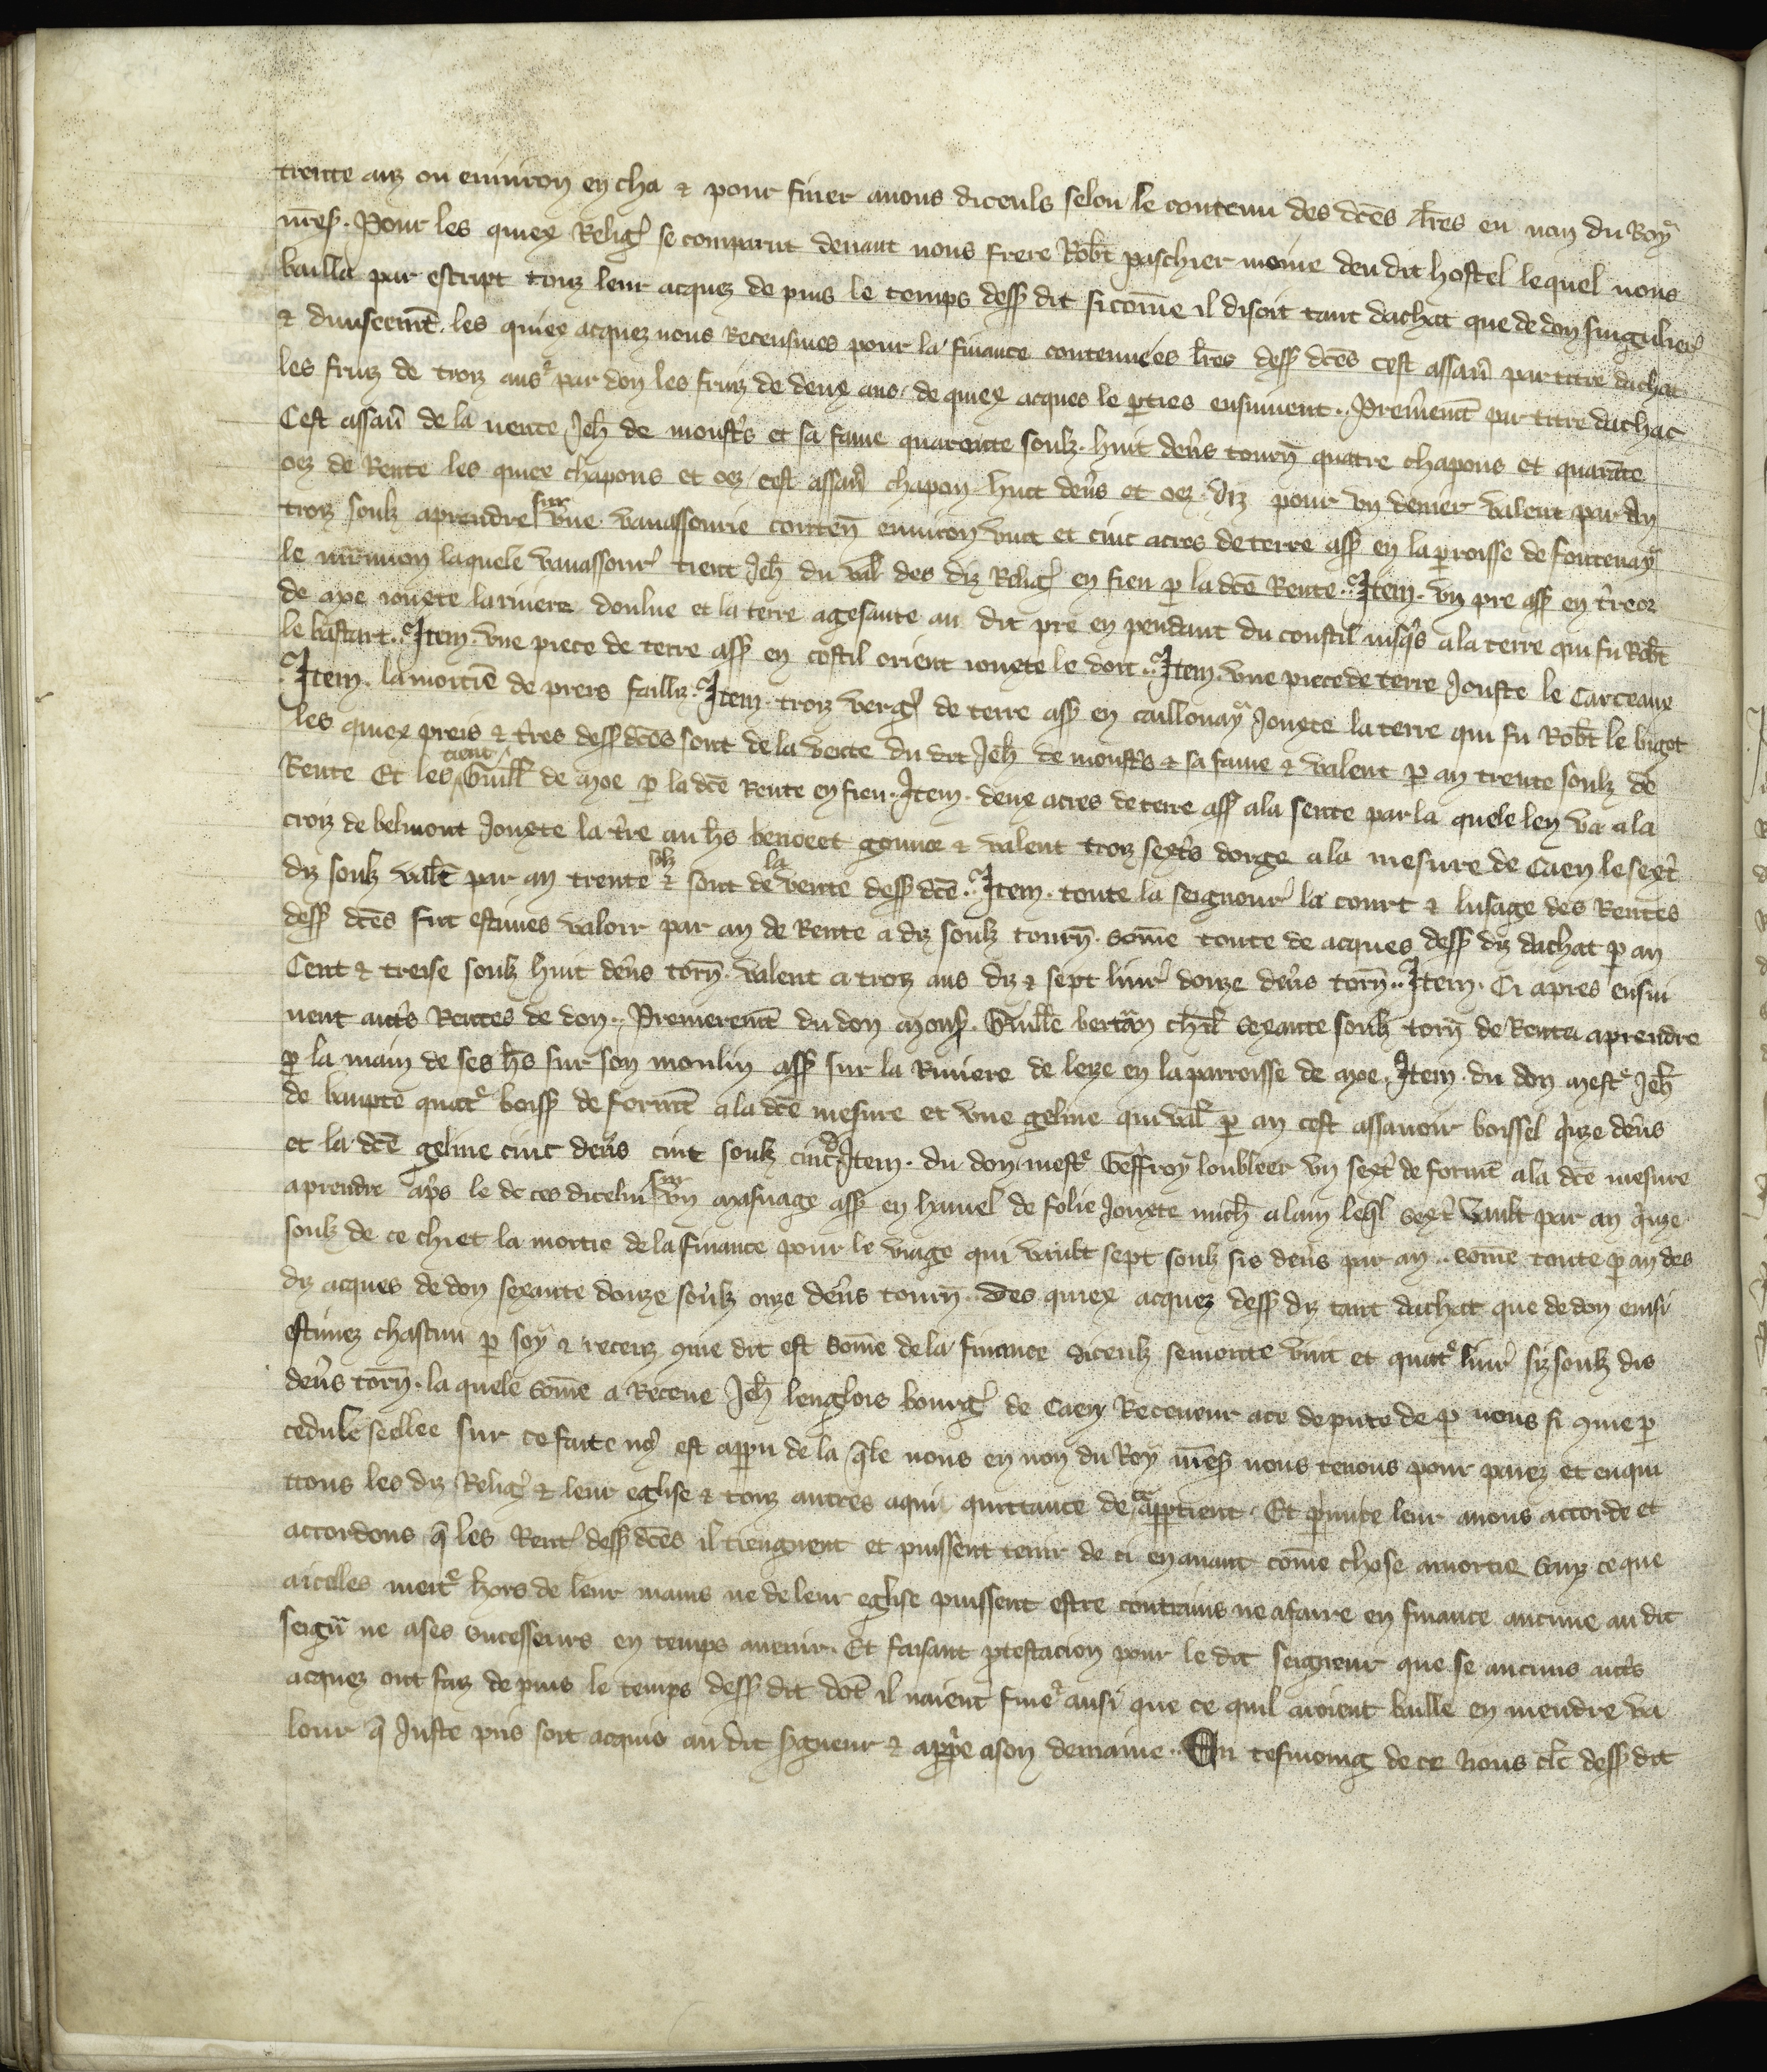 trente anz ou environ en cha & pour finer avons diceuls selon le contenu des dces lres en non du Roy
nres. Pour les quiex Relig se comparut devant nous frere Robt paschier moine deu dit hostel lequel nous
bailla par escript touz leur acquez de puis le temps dess dit sicome il disoit tant dachat que de don singuliers
& diviseemt. les quiex acquez nous Receusmes pour la finance contenue es lres dess dces cest assavr par titre dachat
les fruiz de troiz ans & par don les fruiz de deux ans. de quiex acques le pties ensuivent. Premremt par titre dachat
Cest assavr de la vente Jeh de moustrs et sa fame quarente soulz. huit devrs tourn quatre chapons et quarate
oez de Rente les quiex chapons et oez cest assavr chapon huit devrs et oez diz pour un denier valent par an
troiz soulz aprendre sur une vavassourie conten environ vint et cinc acres de terre ass en la paroisse de fontenay
le marmion laquele vavassour tient Jeh du val des diz Relig en fieu p la dce Rente. Item. un pre ass en treoz
de axe iouxte la riviere doulne et la terre agesante au dit pre en pendant du coustil iusqs a la terre qui fu Robt
le bastart. Item. une piece de terre ass en costil orient iouxte le doit. Item. une piece de terre Jouste le Carceaux
Item. la moitie de prers failliz. Item. troiz verg de terre ass en caillouay Jouxte la terre qui fu Robt le bigot
les quiex preis & tres dess dces sont de la vente du dit Jeh de moustrs & sa fame & valent p an trente soulz de
Rente Et les tient Guill de axe p la dce Rente en fieu. Item. deux acres de terre ass a la sente par la quele len va a la
croiz de belmont Jouxte la tre au hrs benoeet gounce & valent troiz sextrs dorge a la mesure de Caen le sextr
diz soulz valt par an trente solz & sont de la vente dess dce. Item. toute la seignour la court & lusage des Rentes
dess dces fut estimes valoir par an de Rente a diz soulz tourn. some toute de acques dess diz dachat p an
Cent & treise soulz huit devrs torn. valent a troiz ans diz & sept livr douze devrs torn. Item. Ci apres ensui
vent autrs Rentes de don. Premieremt du don mons. Guille bertan chlr sexante soulz torn de Rente aprendre
p la main de ses hrs sur son moulin ass sur la Riviere de leize en la parroisse de axe. Item. du don mestr Jeh
de baupte quatr boiss de formt a la dce mesure et une geline qui val p an cest assavoir boissel quze devrs
et la dce geline cinc devrs cint soulz cinc d Item. du don mestr Geffroy loubleer un sextr de formt a la dce mesure
aprendre aprs le de ces dicelui sur un masnage ass en hamel de folie Jouxte mich alain leql sextr vault par an quze
soulz de ce chiet la moitie de la finance pour le viage qui vault sept soulz sis devrs par an. some toute p an des
diz acques de don sexante douze soulz onze devrs tourn. Des quiex acquez dess diz tant dachat que de don einsi
estimez chascun p soy & receuz come dit est some de la finance diceulz se monte vint et quatr livr siz soulz dis
devrs torn. la quele some a Receue Jeh lenglois bourg de Caen Receveur ace depute de p nous si come p
cedule sellee sur ce faite nos est appu de la qle nous en non du Roy nres nous tenons pour paiez et enqui
ttons les diz Relig & leur eglise & touz autres aqui quittance de ce apptient. Et pmute leur avons accorde et
accordons q les Rent dess dces il tiengnent et puissent tenir de ci en avant come chose amortie sanz ce que
aiceles meitr hors de leur mains ne de leur eglise puissent estre contrains ne afaire en finance aucune au dit
seigr ne ases sucesseurs en temps avenir. Et faisant ptestacion pour le dit seigneur que se aucuns autrs
acquez ont faiz de puis le temps dess dit dot il naient fine & ausi que ce quil aroient baille en mendre va
lour q Juste pris soit acquis au dit sgneur & appre ason demaine. En tesmoing de ce Nous clc dess dit